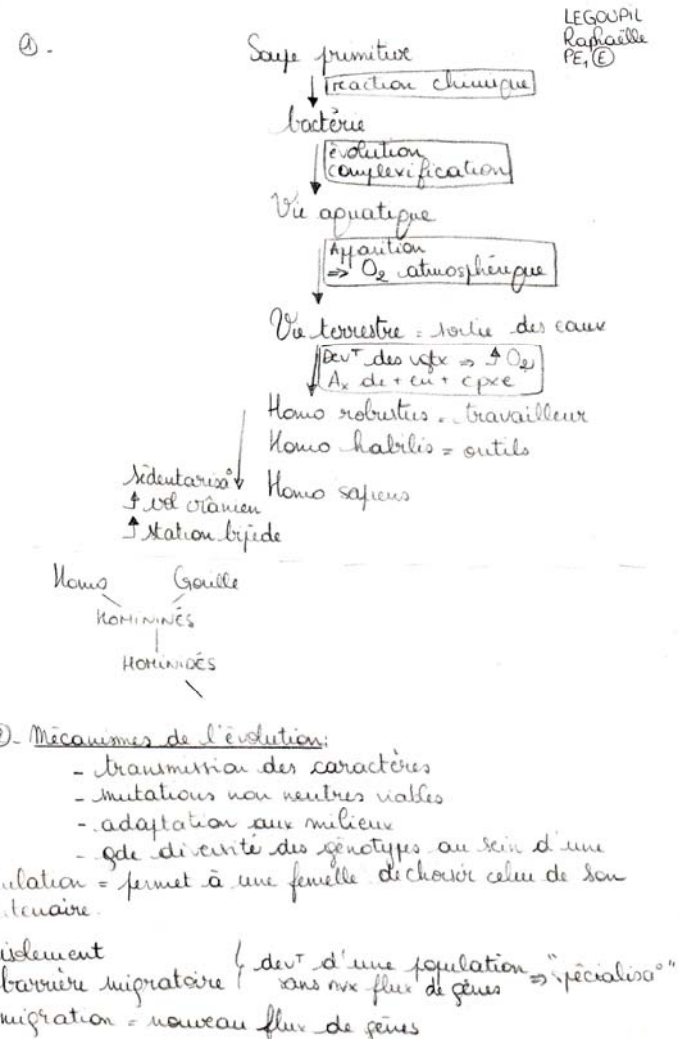 LEGOUPIL
Raphaëlle
PE₁ Ⓔ
①-
Soupe primitive
réaction chimique
bactérie
évolution
complexification
Vie aquatique
Apparition
⇒ O₂ atmosphérique
Vie terrestre = sortie des eaux
Devᵀ des vgtx ⇒ ↑ O₂
Aₓ de + en + cpxe
Homo robustus = travailleur
Homo habilis = outils
Homo sapiens
Sédentarisa°
↑ vol crânien
↑ station bipède
Homo Gorille
HOMININÉS
HOMINIDÉS
②- Mécanismes de l'évolution:
- transmission des caractères
- mutations non neutres viables
- adaptation aux milieux
- gde diversité des génotypes au sein d'une
ulation = permet à une femelle de choisir celui de son
tenaire.
isolement
barrière migratoire } devᵀ d'une population ⇒ "spécialisa°"
sans nvx flux de gènes
migration = nouveau flux de gènes